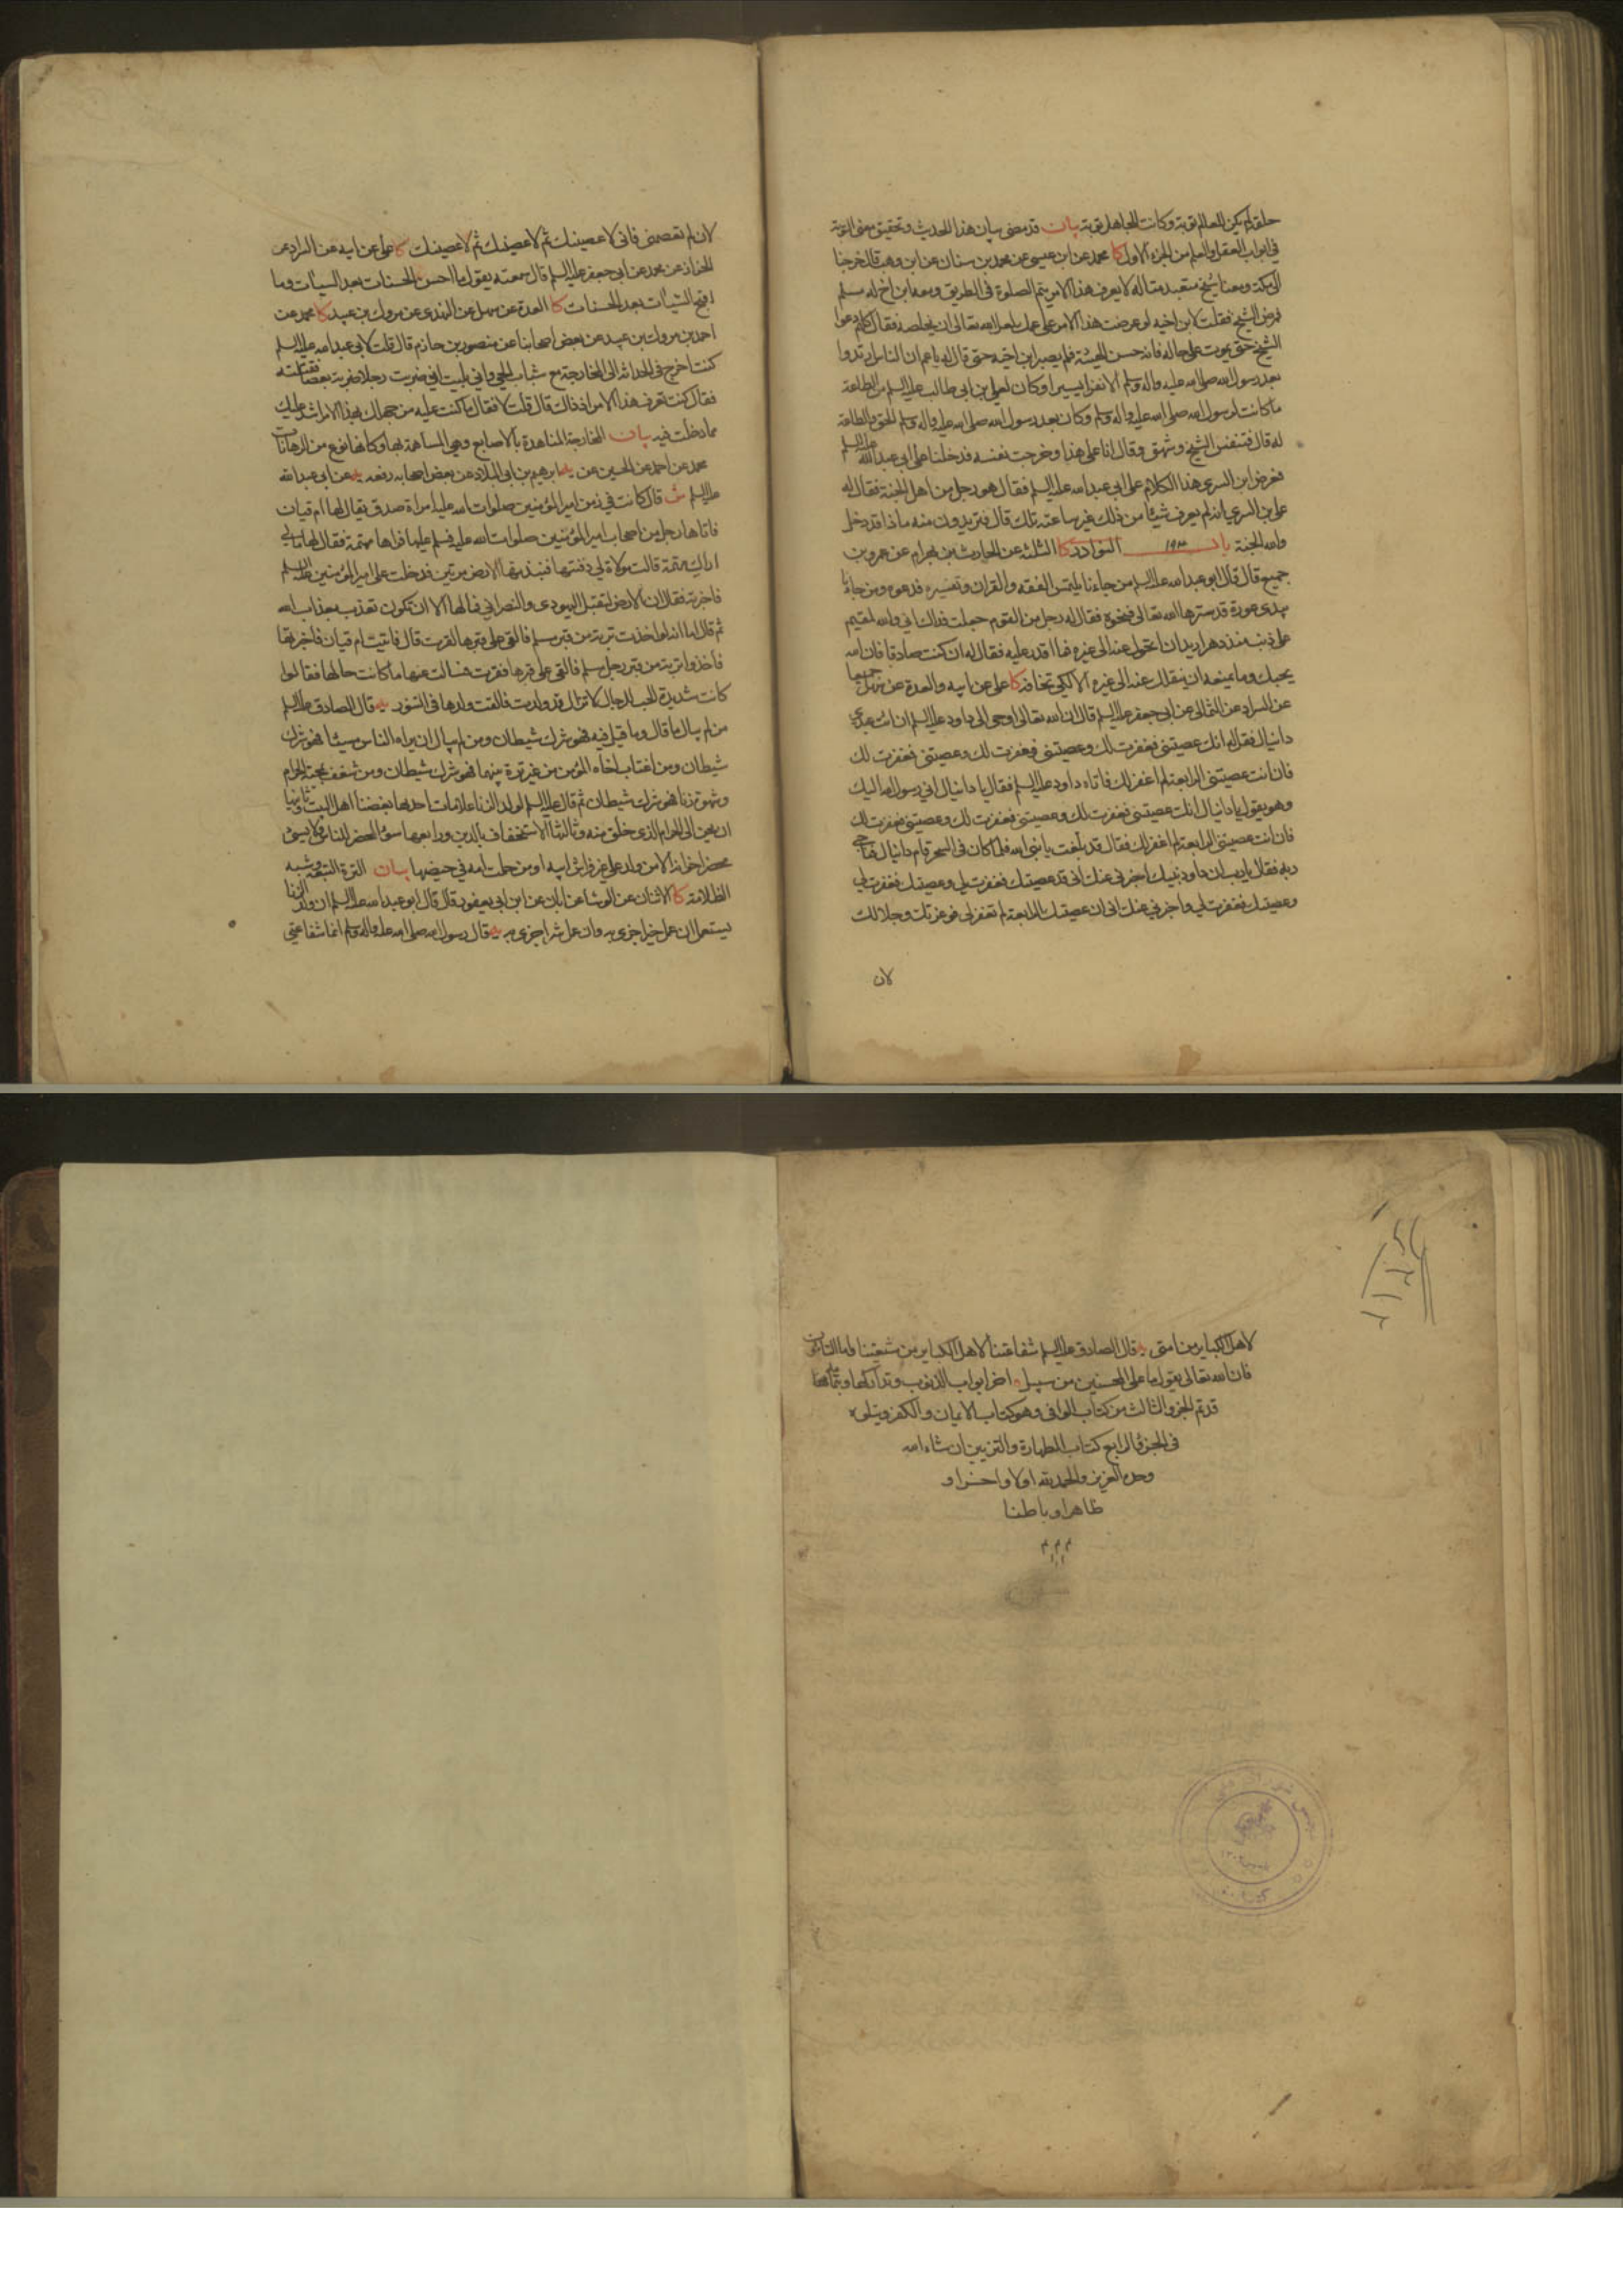 حلقه لم يكن للعالم توبة وكانت للجاهل توبة بيان قد مضى بيان هذا الحديث وتحقيق معنى التوبة
في ابواب العقل والعلم من الجزء الاول كا محمد عن ابن عيسى عن محمد بن سنان عن ابن وهب قال خرجنا
الى مكة ومعنا شيخ متعبد متاله لا يعرف هذا الامر يتم الصلوة في الطريق ومعه ابن اخ له مسلم
فمرض الشيخ فقلت لابن اخيه لو عرضت هذا الامر على عمك لعل الله تعالى ان يخلصه فقال كلهم دعوا
الشيخ حتى يموت على حاله فانه حسن الهيئة فلم يصبر ابن اخيه حتى قال له يا عم ان الناس ارتدوا
بعد رسول الله صلى الله عليه واله وسلم الا نفرا يسيرا وكان لعلي بن ابي طالب عليه السلم من الطاعة
ما كانت لرسول الله صلى الله عليه واله وسلم وكان بعد رسول الله صلى الله عليه واله وسلم الحق والطاعة
له قال فتنفس الشيخ وشهق وقال انا على هذا وخرجت نفسه فدخلنا على ابي عبد الله عليه السلم
فعرض ابن السري هذا الكلام على ابي عبد الله عليه السلم فقال هو رجل من اهل الجنة فقال له
علي بن السري انه لم يعرف شيئا من ذلك غير ساعته تلك قال فتريدون منه ماذا قد دخل
والله الجنة باب ١٩٣ النوادر كا الثلثة عن الحارث بن بهرام عن عمرو بن
جميع قال قال ابو عبد الله عليه السلم من جاءنا يلتمس الفقه والقران وتفسيره فدعوه ومن جاءنا
يبدي عورة قد سترها الله تعالى فنحوه فقال له رجل من القوم جعلت فداك اني والله لمقيم
على ذنب منذ دهر اريد ان اتحول عنه الى غيره فما اقدر عليه فقال له ان كنت صادقا فان الله
يحبك وما يمنعه ان ينقلك عنه الى غيره الا لكي تخافه كا علي عن ابيه والعدة عن سهل جميعا
عن السراد عن الثمالي عن ابي جعفر عليه السلم قال ان الله تعالى اوحى الى داود عليه السلم ان ائت عبدي
دانيال فقل له انك عصيتني فغفرت لك وعصيتني فغفرت لك وعصيتني فغفرت لك
فان انت عصيتني الرابعة لم اغفر لك فاتاه داود عليه السلم فقال يا دانيال اني رسول الله اليك
وهو يقول يا دانيال انك عصيتني فغفرت لك وعصيتني فغفرت لك وعصيتني فغفرت لك
فان انت عصيتني الرابعة لم اغفر لك فقال قد بلغت يا نبي الله فلما كان في السحر قام دانيال فناجى
ربه فقال يا رب ان داود نبيك اخبرني عنك اني قد عصيتك فغفرت لي وعصيتك فغفرت لي
وعصيتك فغفرت لي واخبرني عنك اني ان عصيتك الرابعة لم تغفر لي فوعزتك وجلالك
لان
لان لم تعصمني فاني لاعصينك ثم لاعصينك ثم لاعصينك كا علي عن ابيه عن السراد عن
الخزاز عن محمد عن ابي جعفر عليه السلم قال سمعته يقول ما احسن الحسنات بعد السيئات وما
اقبح السيئات بعد الحسنات كا العدة عن سهل عن النهدي عن مروك بن عبيد كا محمد عن
احمد بن مروك بن عبيد عن بعض اصحابنا عن منصور بن حازم قال قلت لابي عبد الله عليه السلم
كنت اخرج في الحداثة الى المخارجة مع شباب الحي واني بليت اني ضربت رجلا ضربة بعصا فقتلته
فقال كنت تعرف هذا الامر اذ ذاك قال قلت لا فقال ما كنت عليه من جهلك بهذا الامر اشد عليك
مما دخلت فيه بيان المخارجة المناهدة بالاصابع وهي المساهمة بها وكانها نوع من الرهانات
محمد عن احمد عن الحسين عن يه ابرهيم بن ابي البلاد عن بعض اصحابه رفعه يه عن ابي عبد الله
عليه السلم ش قال كانت في زمن امير المؤمنين صلوات الله عليه امراة صدق يقال لها ام قيان
فاتاها رجل من اصحاب امير المؤمنين صلوات الله عليه فسلم عليها فراها مهتمة فقال لها مالي
اراك مهتمة قالت مولاة لي دفنتها فنبذتها الارض مرتين فدخلت على امير المؤمنين عليه السلم
فاخبرته فقال ان الارض لتقبل اليهودي والنصراني فما لها الا ان تكون تعذب بعذاب الله
ثم قال اما انه لو اخذت تربة من قبر مسلم فالقي على قبرها لقرت قال فاتيت ام قيان فاخبرتها
فاخذوا تربة من قبر رجل مسلم فالقي على قبرها فقرت فسالت عنها ما كانت حالها فقالوا
كانت شديدة الحب للرجال لا تزال قد ولدت فالقت ولدها في التنور يه قال الصادق عليه السلم
من لم يبال ما قال وما قيل فيه فهو شرك شيطان ومن لم يبال ان يراه الناس مسيئا فهو شرك
شيطان ومن اغتاب اخاه المؤمن من غير ترة بينهما فهو شرك شيطان ومن شغف بمحبة الحرام
وشهوة زنا فهو شرك شيطان ثم قال عليه السلم لولد الزنا علامات احدها بغضنا اهل البيت وثانيها
ان يحن الى الحرام الذي خلق منه وثالثها الاستخفاف بالدين ورابعها سوء المحضر للناس ولا يسئ
محضر اخوانه الا من ولد على غير فراش ابيه او من حملت به امه في حيضها بيان الترة التبعة وشبه
الظلامة كا الاثنان عن الوشاء عن ابان عن ابن ابي يعفور قال قال ابو عبد الله عليه السلم ان ولد الزنا
يستعمل ان عمل خيرا جزى به وان عمل شرا جزى به يه قال رسول الله صلى الله عليه واله وسلم انما شفاعتي
لاهل الكبائر من امتي يه قال الصادق عليه السلم شفاعتنا لاهل الكبائر من شيعتنا واما التائبون
فان الله تعالى يقول ما على المحسنين من سبيل اخر ابواب الذنوب وتداركها
قد تم الجزء الثالث من كتاب الوافي وهو كتاب الايمان والكفر ويتلوه
في الجزء الرابع كتاب الطهارة والتزيين ان شاء الله
وحده العزيز والحمد لله اولا واخرا و
ظاهرا وباطنا